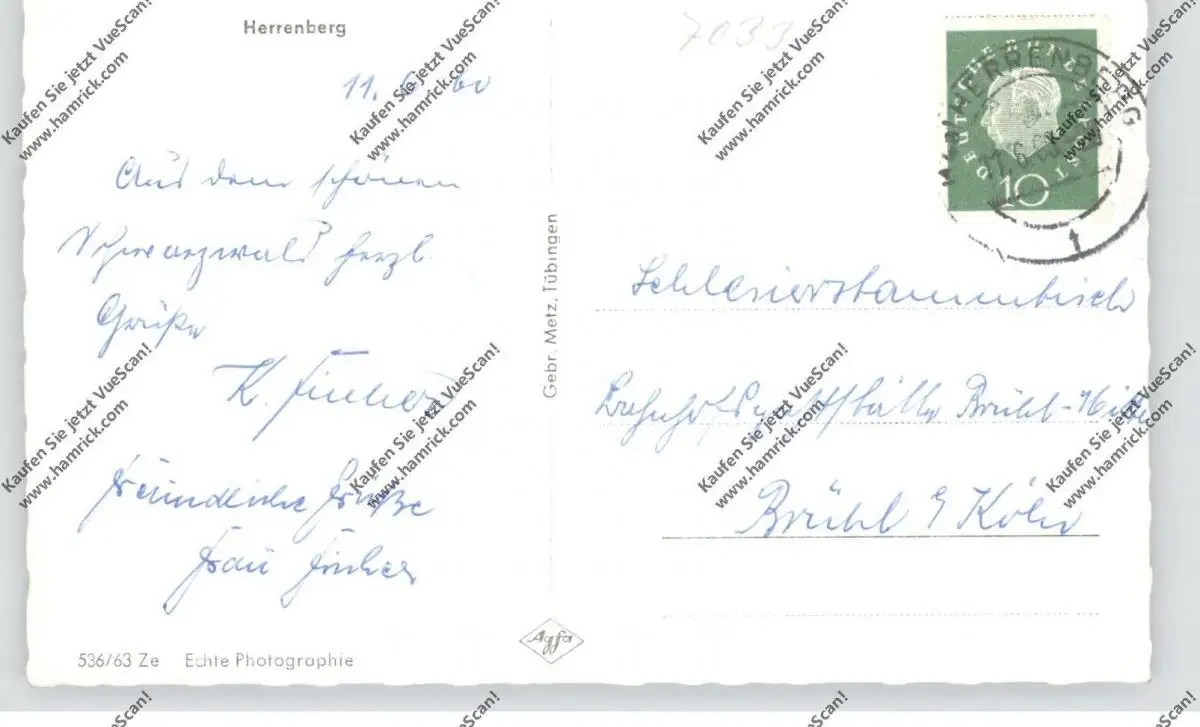 Herrenberg
7033
11. 6. 60
Aus dem schönen
Schwarzwald herzl.
Grüße
K.
Freundliche Grüße
Frau
536/63 Ze Echte Photographie
Gebr. Metz, Tübingen
Agfa
DEUTSCHE BUNDESPOST
10
HERRENBERG
11.6.60
Schlesierstammtisch
Bahnhofsgaststätte Brühl-Mitte
Brühl b/ Köln
Kaufen Sie jetzt VueScan!
www.hamrick.com
Kaufen Sie jetzt VueScan!
www.hamrick.com
Kaufen Sie jetzt VueScan!
www.hamrick.com
Kaufen Sie jetzt VueScan!
www.hamrick.com
Kaufen Sie jetzt VueScan!
www.hamrick.com
Kaufen Sie jetzt VueScan!
www.hamrick.com
Kaufen Sie jetzt VueScan!
www.hamrick.com
Kaufen Sie jetzt VueScan!
www.hamrick.com